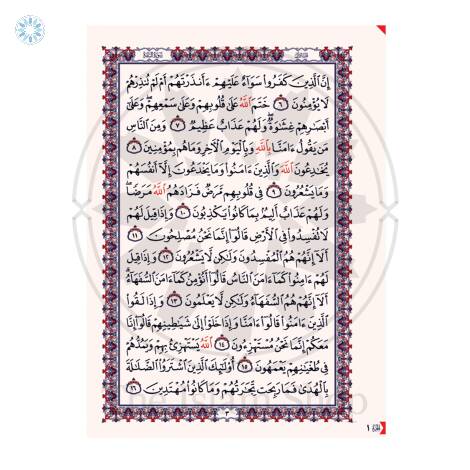 إِنَّ الَّذِينَ كَفَرُوا سَوَآءٌ عَلَيْهِمْ ءَأَنذَرْتَهُمْ أَمْ لَمْ تُنذِرْهُمْ
لَا يُؤْمِنُونَ ٦ خَتَمَ اللَّهُ عَلَىٰ قُلُوبِهِمْ وَعَلَىٰ سَمْعِهِمْ ۖ وَعَلَىٰٓ
أَبْصَـٰرِهِمْ غِشَـٰوَةٌ ۖ وَلَهُمْ عَذَابٌ عَظِيمٌ ٧ وَمِنَ النَّاسِ
مَن يَقُولُ ءَامَنَّا بِاللَّهِ وَبِالْيَوْمِ الْآخِرِ وَمَا هُم بِمُؤْمِنِينَ ٨
يُخَـٰدِعُونَ اللَّهَ وَالَّذِينَ ءَامَنُوا وَمَا يَخْدَعُونَ إِلَّآ أَنفُسَهُمْ
وَمَا يَشْعُرُونَ ٩ فِي قُلُوبِهِم مَّرَضٌ فَزَادَهُمُ اللَّهُ مَرَضًا ۖ
وَلَهُمْ عَذَابٌ أَلِيمٌۢ بِمَا كَانُوا يَكْذِبُونَ ١٠ وَإِذَا قِيلَ لَهُمْ
لَا تُفْسِدُوا فِي الْأَرْضِ قَالُوٓا إِنَّمَا نَحْنُ مُصْلِحُونَ ١١
أَلَآ إِنَّهُمْ هُمُ الْمُفْسِدُونَ وَلَـٰكِن لَّا يَشْعُرُونَ ١٢ وَإِذَا قِيلَ
لَهُمْ ءَامِنُوا كَمَآ ءَامَنَ النَّاسُ قَالُوٓا أَنُؤْمِنُ كَمَآ ءَامَنَ السُّفَهَآءُ ۗ
أَلَآ إِنَّهُمْ هُمُ السُّفَهَآءُ وَلَـٰكِن لَّا يَعْلَمُونَ ١٣ وَإِذَا لَقُوا
الَّذِينَ ءَامَنُوا قَالُوٓا ءَامَنَّا وَإِذَا خَلَوْا إِلَىٰ شَيَـٰطِينِهِمْ قَالُوٓا إِنَّا
مَعَكُمْ إِنَّمَا نَحْنُ مُسْتَهْزِءُونَ ١٤ اللَّهُ يَسْتَهْزِئُ بِهِمْ وَيَمُدُّهُمْ
فِي طُغْيَـٰنِهِمْ يَعْمَهُونَ ١٥ أُولَـٰٓئِكَ الَّذِينَ اشْتَرَوُا الضَّلَـٰلَةَ
بِالْهُدَىٰ فَمَا رَبِحَت تِّجَـٰرَتُهُمْ وَمَا كَانُوا مُهْتَدِينَ ١٦
٣
١